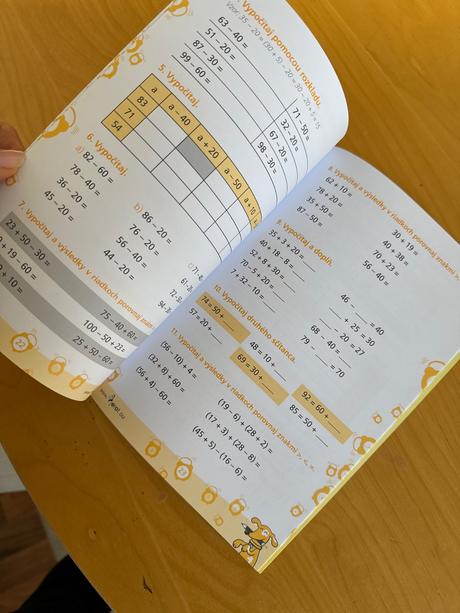 Vypočítaj pomocou rozkladu.
Vzor: 35 – 20 = (30 + 5) – 20 = 30 – 20 + 5 = 15
63 – 40 =
51 – 20 =
87 – 30 =
99 – 60 =
71 – 50 =
32 – 20 =
67 – 20 =
98 – 30 =
5. Vypočítaj.
a a – 40 a + 20 a – 50 a + 10
83
71
54
6. Vypočítaj.
a) 82 – 60 =
78 – 40 =
36 – 20 =
45 – 20 =
b) 86 – 20 =
76 – 20 =
56 – 40 =
44 – 20 =
7. Vypočítaj a výsledky v riadkoch porovnaj
23 + 50 – 30 =
+ 19 – 60 =
+ 10 =
75 – 40 + 60 =
100 – 50 + 23 =
25 + 50 – 60 =
22
8. Vypočítaj a výsledky v riadkoch porovnaj znakmi >
62 + 10 =
78 + 20 =
35 + 50 =
87 – 50 =
30 + 19 =
40 + 38 =
70 + 23 =
56 – 40 =
9. Vypočítaj a doplň.
35 + 3 + 20 =
40 + 18 – 8 =
52 + 8 + 30 =
70 – 5 + 20 =
7 + 32 – 10 =
46 – ___ = 40
___ + 25 = 30
___ – 20 = 27
68 – 40 = ___
79 – ___ = 70
10. Vypočítaj druhého sčítanca.
74 = 50 + ___
57 = 20 + ___
48 = 10 + ___
69 = 30 + ___
92 = 60 + ___
85 = 50 + ___
11. Vypočítaj a výsledky v riadkoch porovnaj znakmi >, <, =.
(56 – 10) + 4 =
(32 + 8) + 60 =
(56 + 4) – 60 =
(19 – 6) + (28 + 2) =
(17 + 3) + (28 – 8) =
(45 + 5) – (16 – 6) =
23